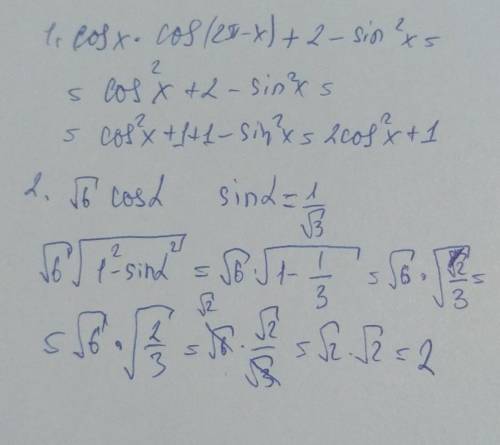 1. cosx · cos(2π-x) + 2 - sin²x =
= cos²x + 2 - sin²x =
= cos²x + 1 + 1 - sin²x = 2cos²x + 1
2. √6 cosα sinα = 1/√3
√6 √(1² - sinα²) = √6 · √(1 - 1/3) = √6 · √(2/3) =
= √6 · √(2/3) = √6 √2 · √2/√3 = √2 · √2 = 2